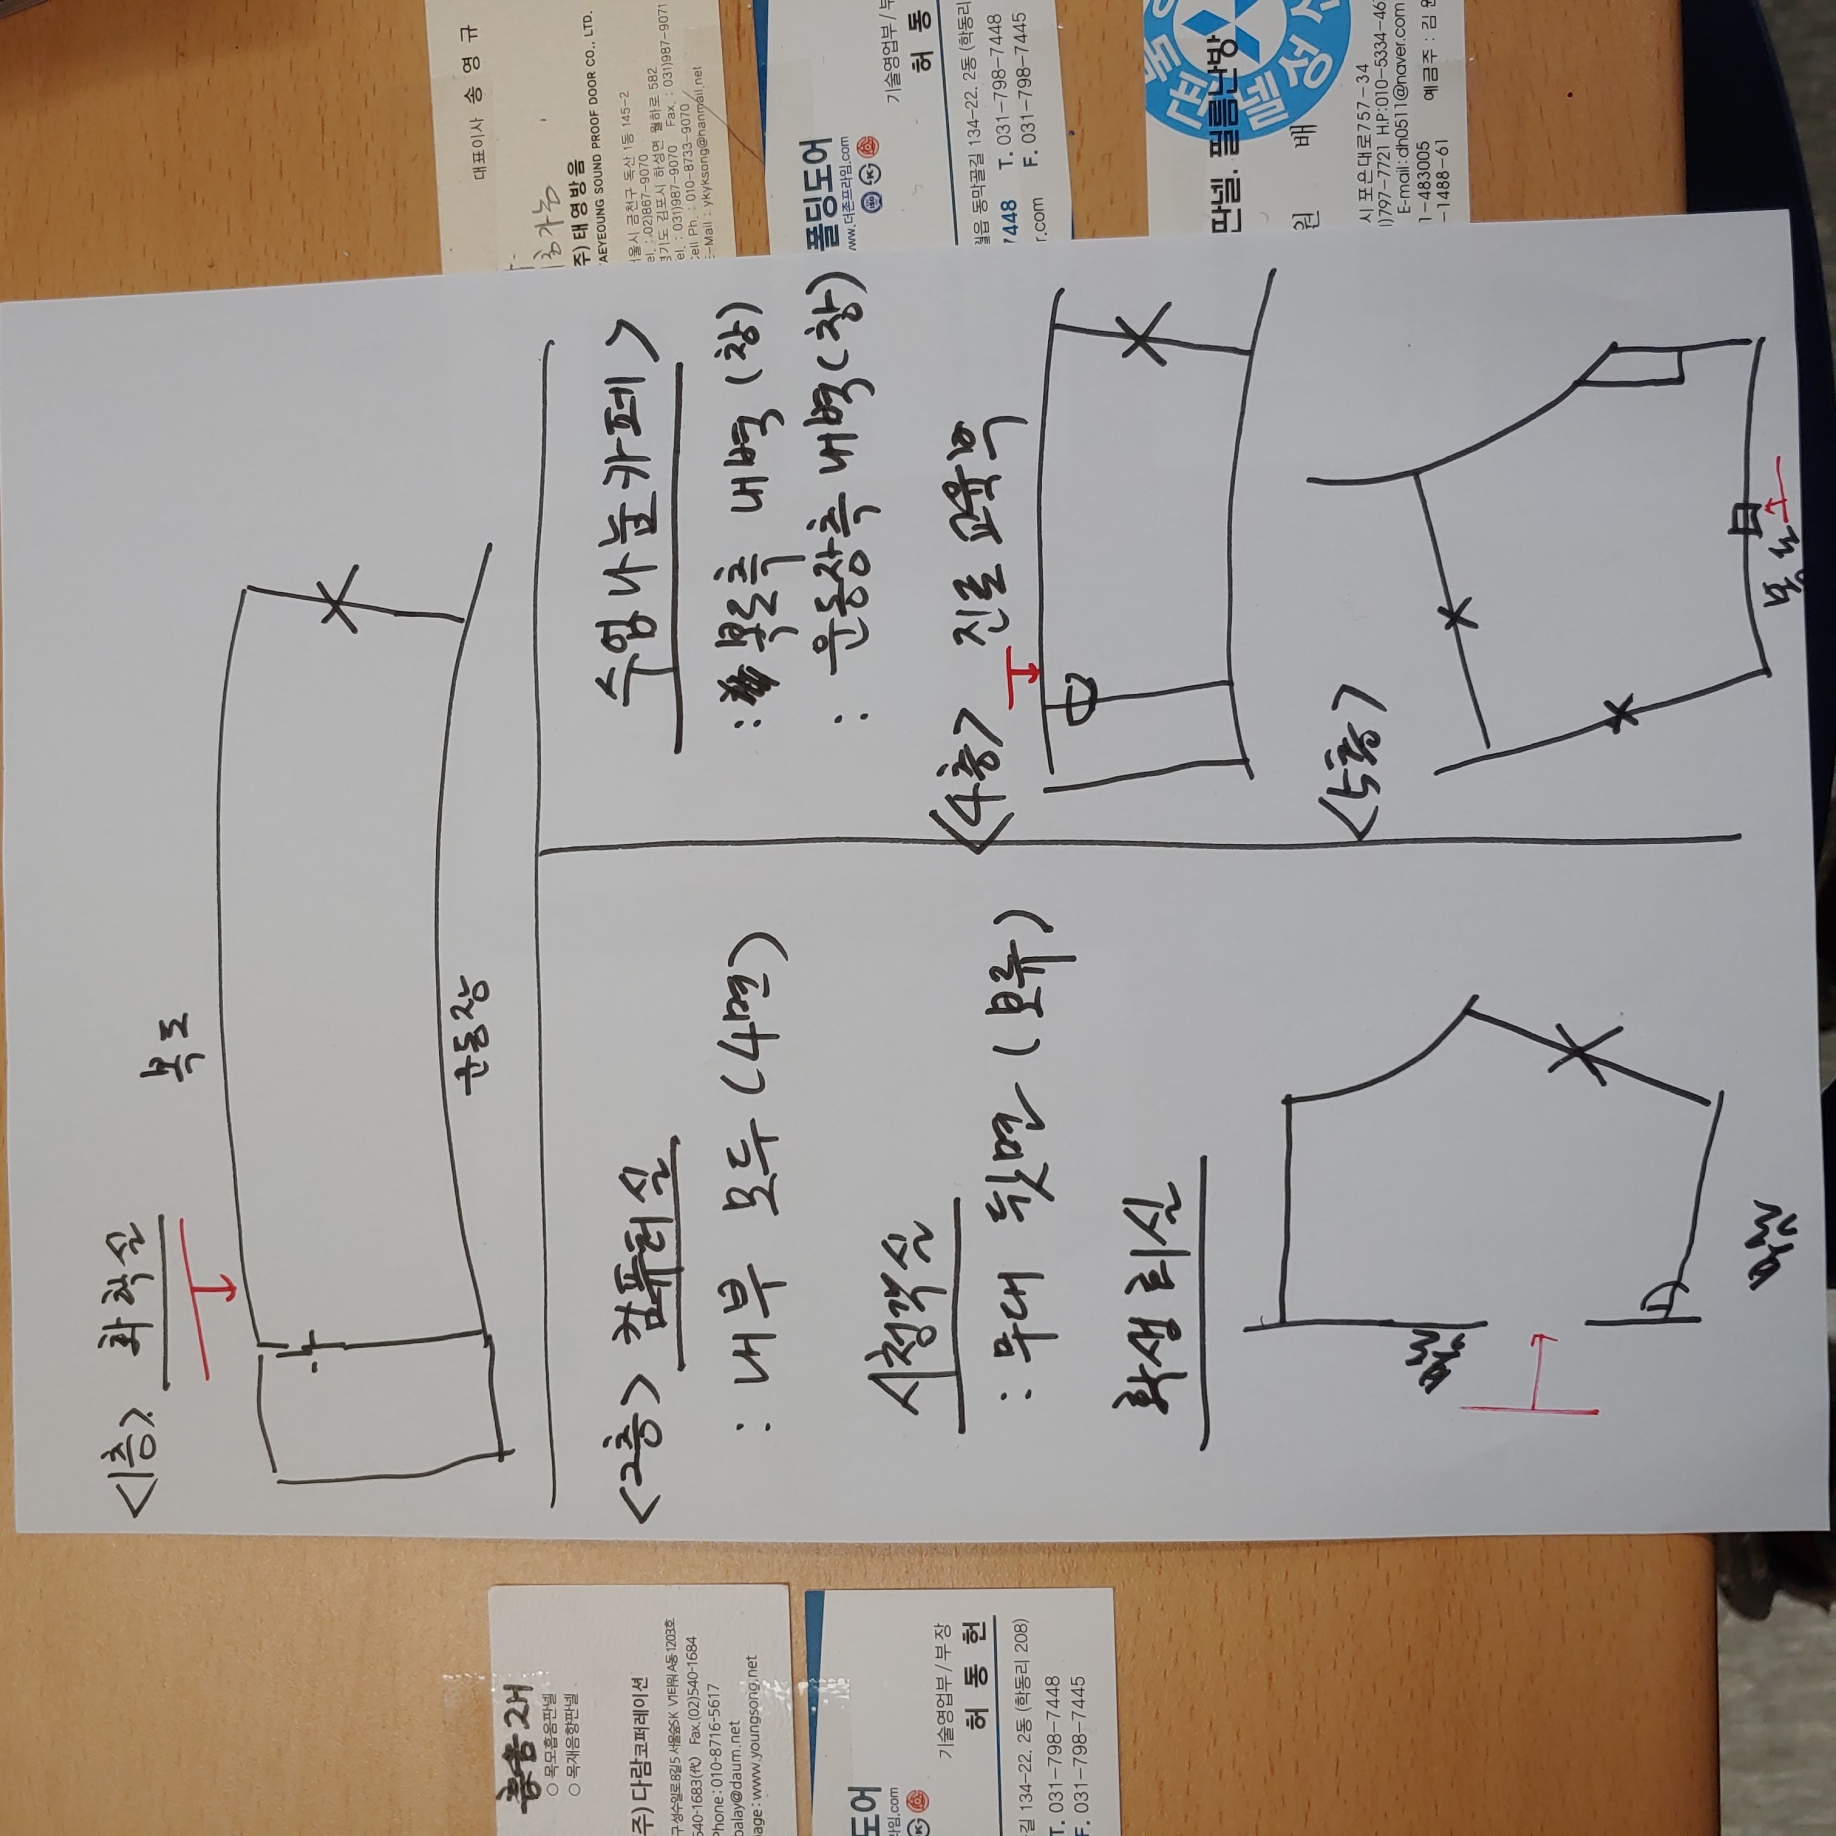 <1층>. 화학실
복도
운동장
<2층> 컴퓨터실
: 내부 모두 (4면)
시청각실
: 무대 뒷면 (보류)
학생회실
수업나눔카페>
: 복도측 내벽 (창)
: 운동장측 내벽 (창)
<4층> 진로교육부
<5층>
복도
대표이사 송영규
주) 태영방음
TAEYEOUNG SOUND PROOF DOOR CO., LTD.
서울시 금천구 독산 1동 145-2
el. : 02)867-9070
경기도 김포시 하성면 월하로 582
el. : 031)987-9070 Fax. : 031)987-9071
Cell Ph. : 010-8733-9070
E-Mail : ykyksong@hanmail.net
기술영업부 / 부
허 동
폴딩도어
www.더존프라임.com
읍 동막골길 134-22. 2동 (학동리
7448 T. 031-798-7448
r.com F. 031-798-7445
판넬. 필름난방
원 배
시 포은대로757-34
)797-7721 H.P:010-5334-46
E-mail:dh0511@naver.com
1-483005 예금주 : 김
-1488-61
흡음재
○ 목모흡음판넬
○ 목재음향판넬
주) 다람코퍼레이션
구 성수일로8길5 서울숲SK V1타워 A동 1203호
540-1683(代) Fax.(02)540-1684
Phone : 010-8716-5617
balay@daum.net
page : www.youngsong.net
기술영업부 / 부장
허 동 헌
도어
라임.com
길 134-22. 2동 (학동리 208)
T. 031-798-7448
F. 031-798-7445